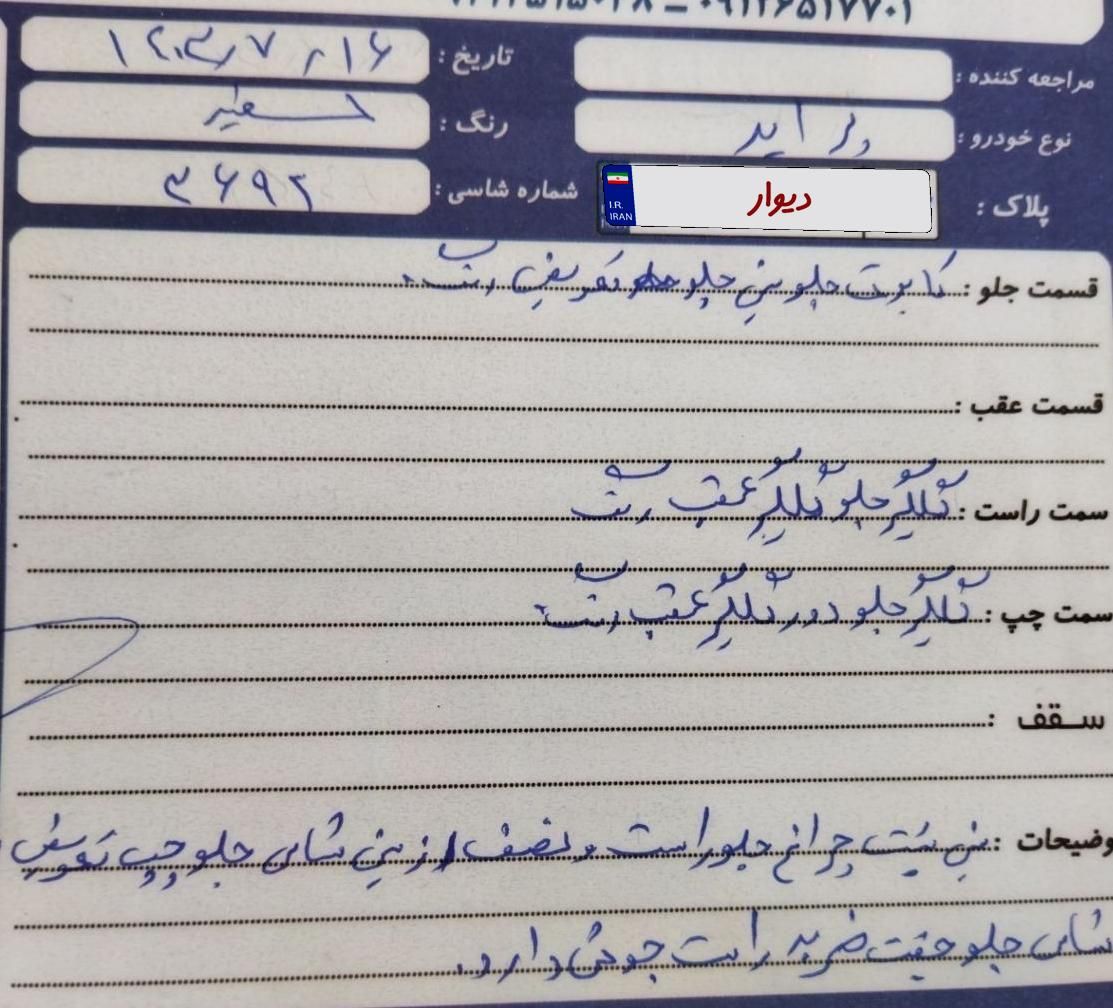 ۰۹۱۲۶۵۱۷۷۰۱ –
مراجعه کننده :
تاریخ : ۱۴۰۳٫۷٫۱۶
نوع خودرو : پراید
رنگ : سفید
پلاک : دیوار
I.R. IRAN
شماره شاسی : ۳۶۹۲
قسمت جلو : کاپوت جلو سینی جلو تعویض رنگ.
قسمت عقب :
سمت راست : گلگیر جلو گلگیر عقب رنگ
سمت چپ : گلگیر جلو دور گلگیر عقب رنگ.
سقف :
وضیحات : سینی پشت چراغ جلو راست و نصف از سینی شاسی جلو چپ تعویض
شاسی جلو جفت ضربه راست جوش دارد.